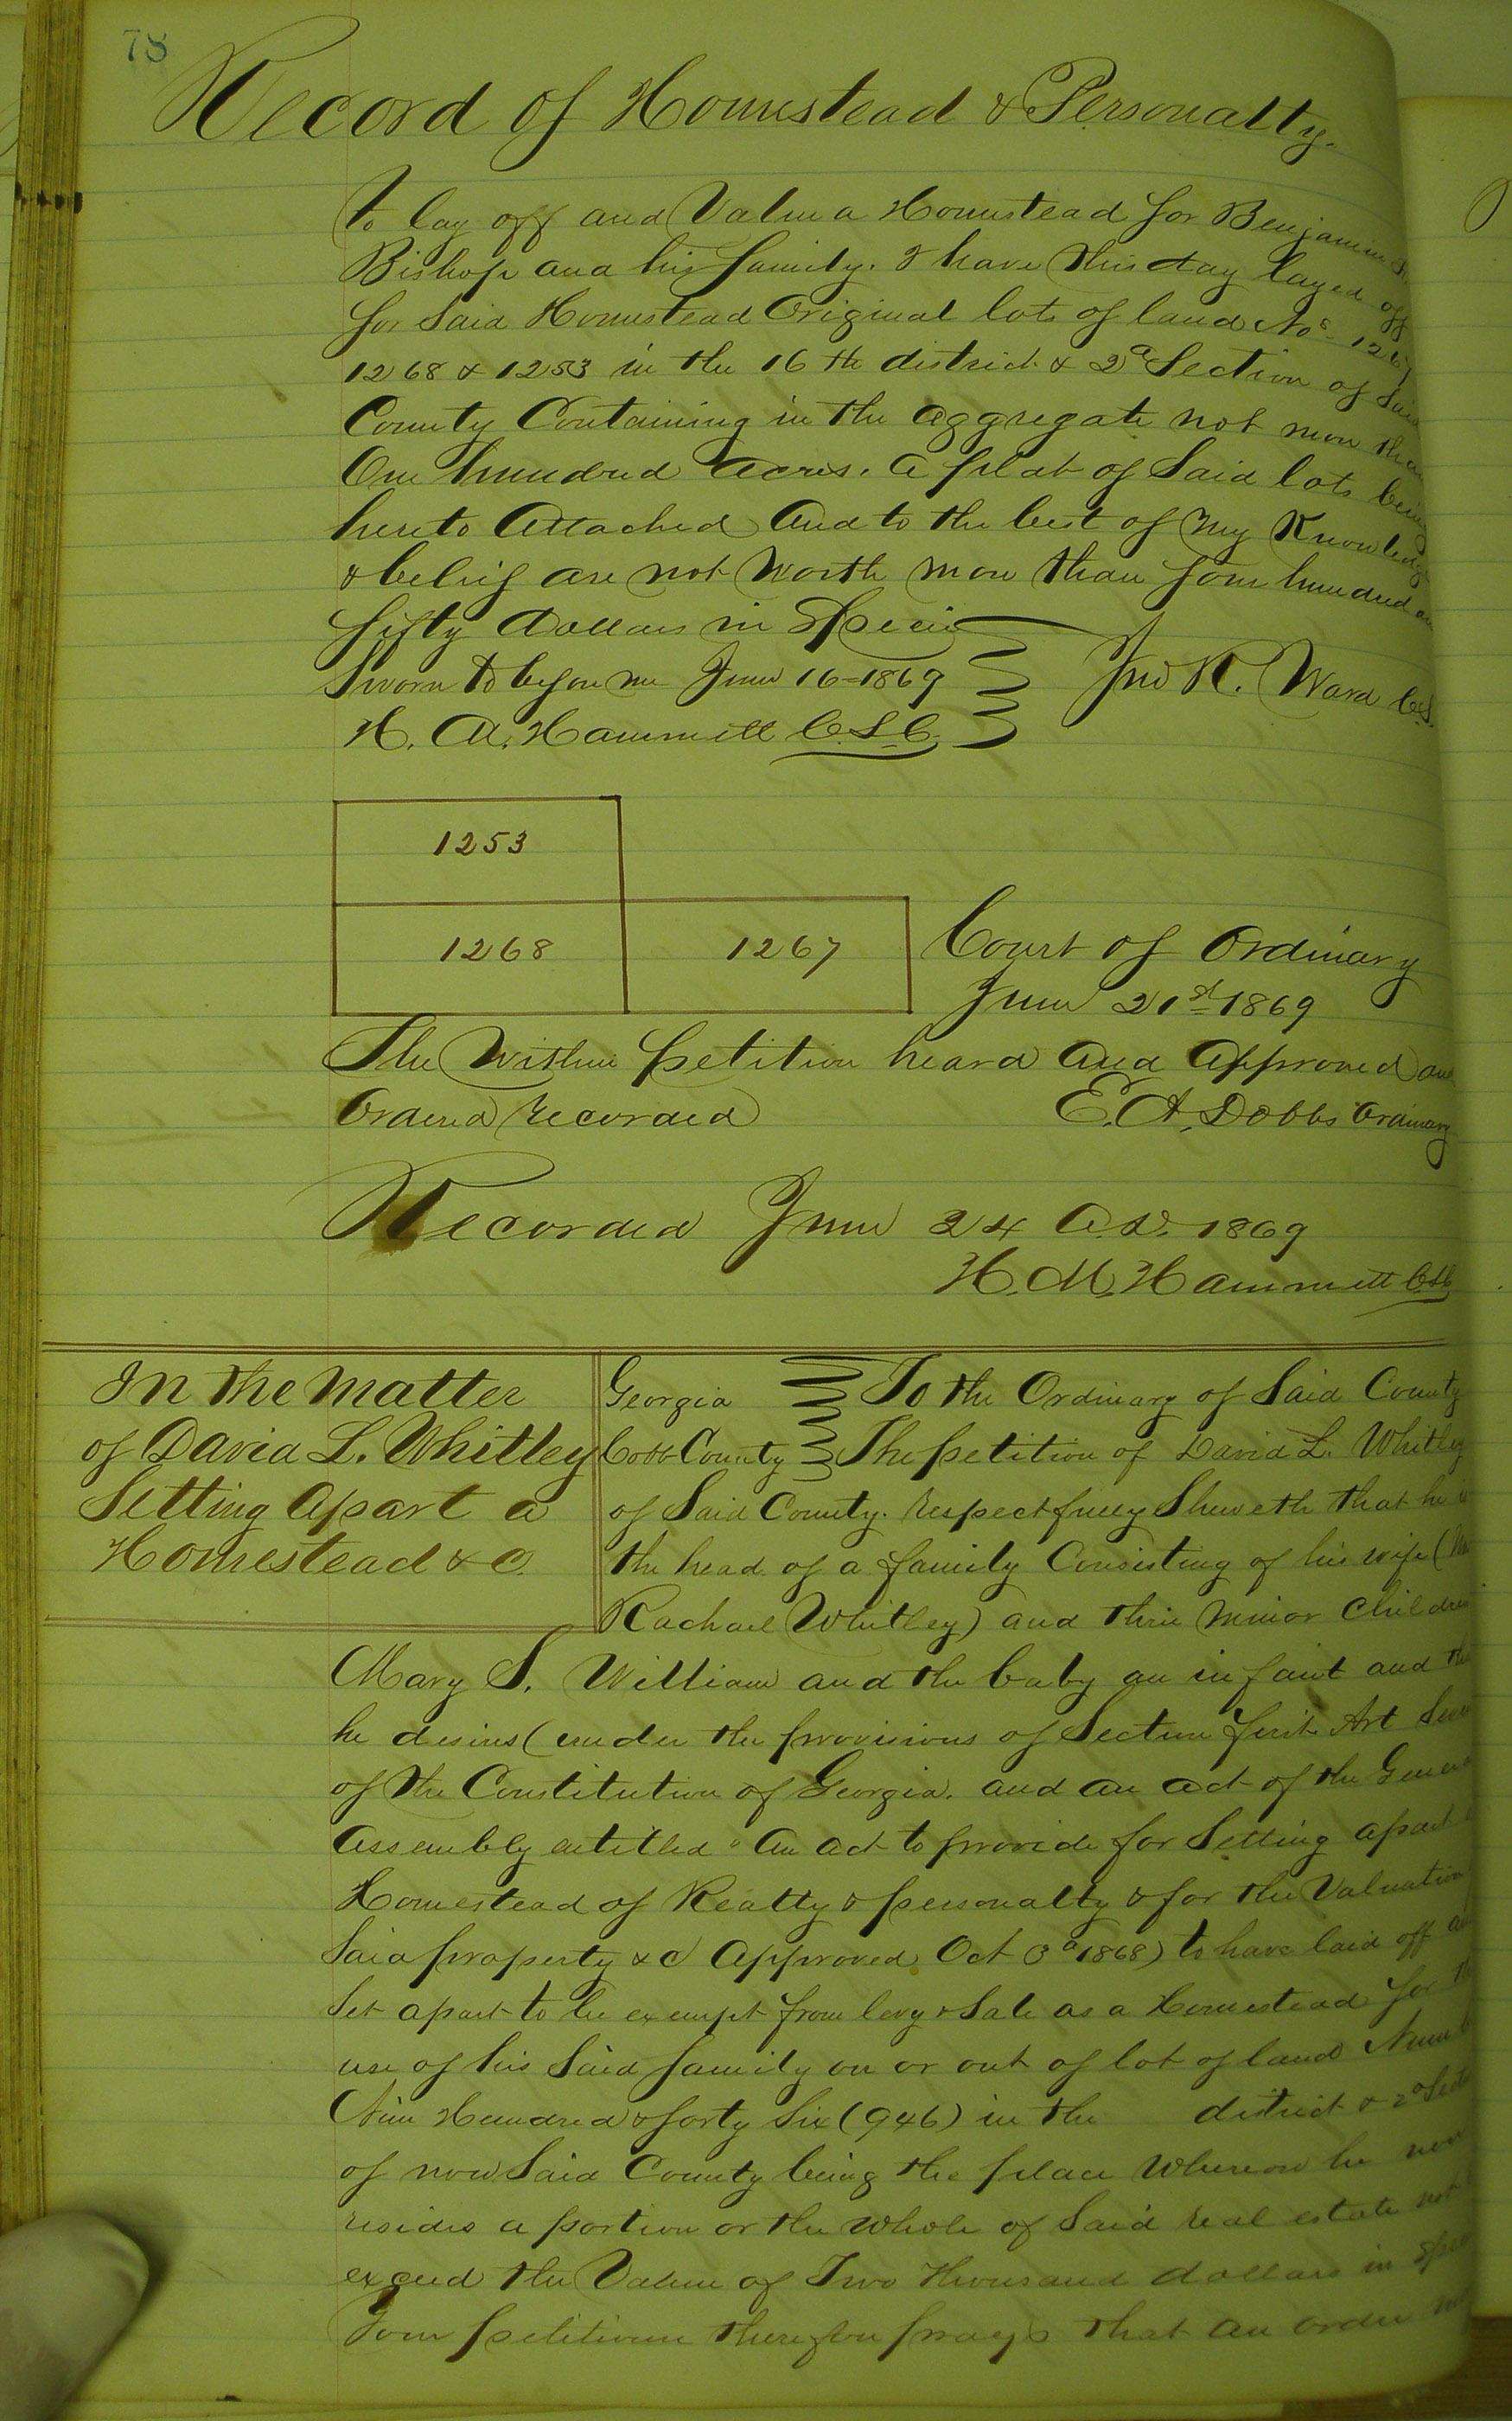 78
Record of Homestead & Personalty.
To lay off and Value a Homestead for Benjamin
Bishop and his family. I have this day layed off
for Said Homestead Original lots of land Nos. 1267
1268 & 1253 in the 16th district & 2d Section of Said
County Containing in the aggregate not more than
One hundred Acres. A plat of Said lots being
hereto Attached And to the best of my Knowledge
& belief are not Worth more than four hundred and
fifty dollars in Specie
Sworn to before me June 16-1869 Jno R. Ward C.S.
H. M. Hammett C.S.C.
1253
1268 1267
Court of Ordinary
June 21st 1869
The Within petition heard and Approved and
Ordered recorded E. A. Dobbs Ordinary
Recorded June 24 A.D. 1869
H. M. Hammett C.S.C.
In the matter
of David L. Whitley
Setting Apart a
Homestead &c
Georgia To the Ordinary of Said County
Cobb County The petition of David L. Whitley
of Said County. respectfully Sheweth that he is
the head of a family Consisting of his wife (
Rachael Whitley) and three minor Children
Mary S. William and the baby an infant and that
he desires (under the provisions of Section first Art
of the Constitution of Georgia. and an act of the General
Assembly entitled "An act to provide for Setting apart a
Homestead of Realty & personalty & for the Valuation
Said property &c Approved Oct 3d 1868) to have laid off and
Set apart to be exempt from levy & Sale as a Homestead for the
use of his Said family on or out of lot of land Number
Nine Hundred & forty Six (946) in the district & 2d Section
of now Said County being the place Whereon he now
resides a portion or the whole of Said real estate not
exceed the Value of Two thousand dollars in Specie
Your petitioner therefore prays that an order